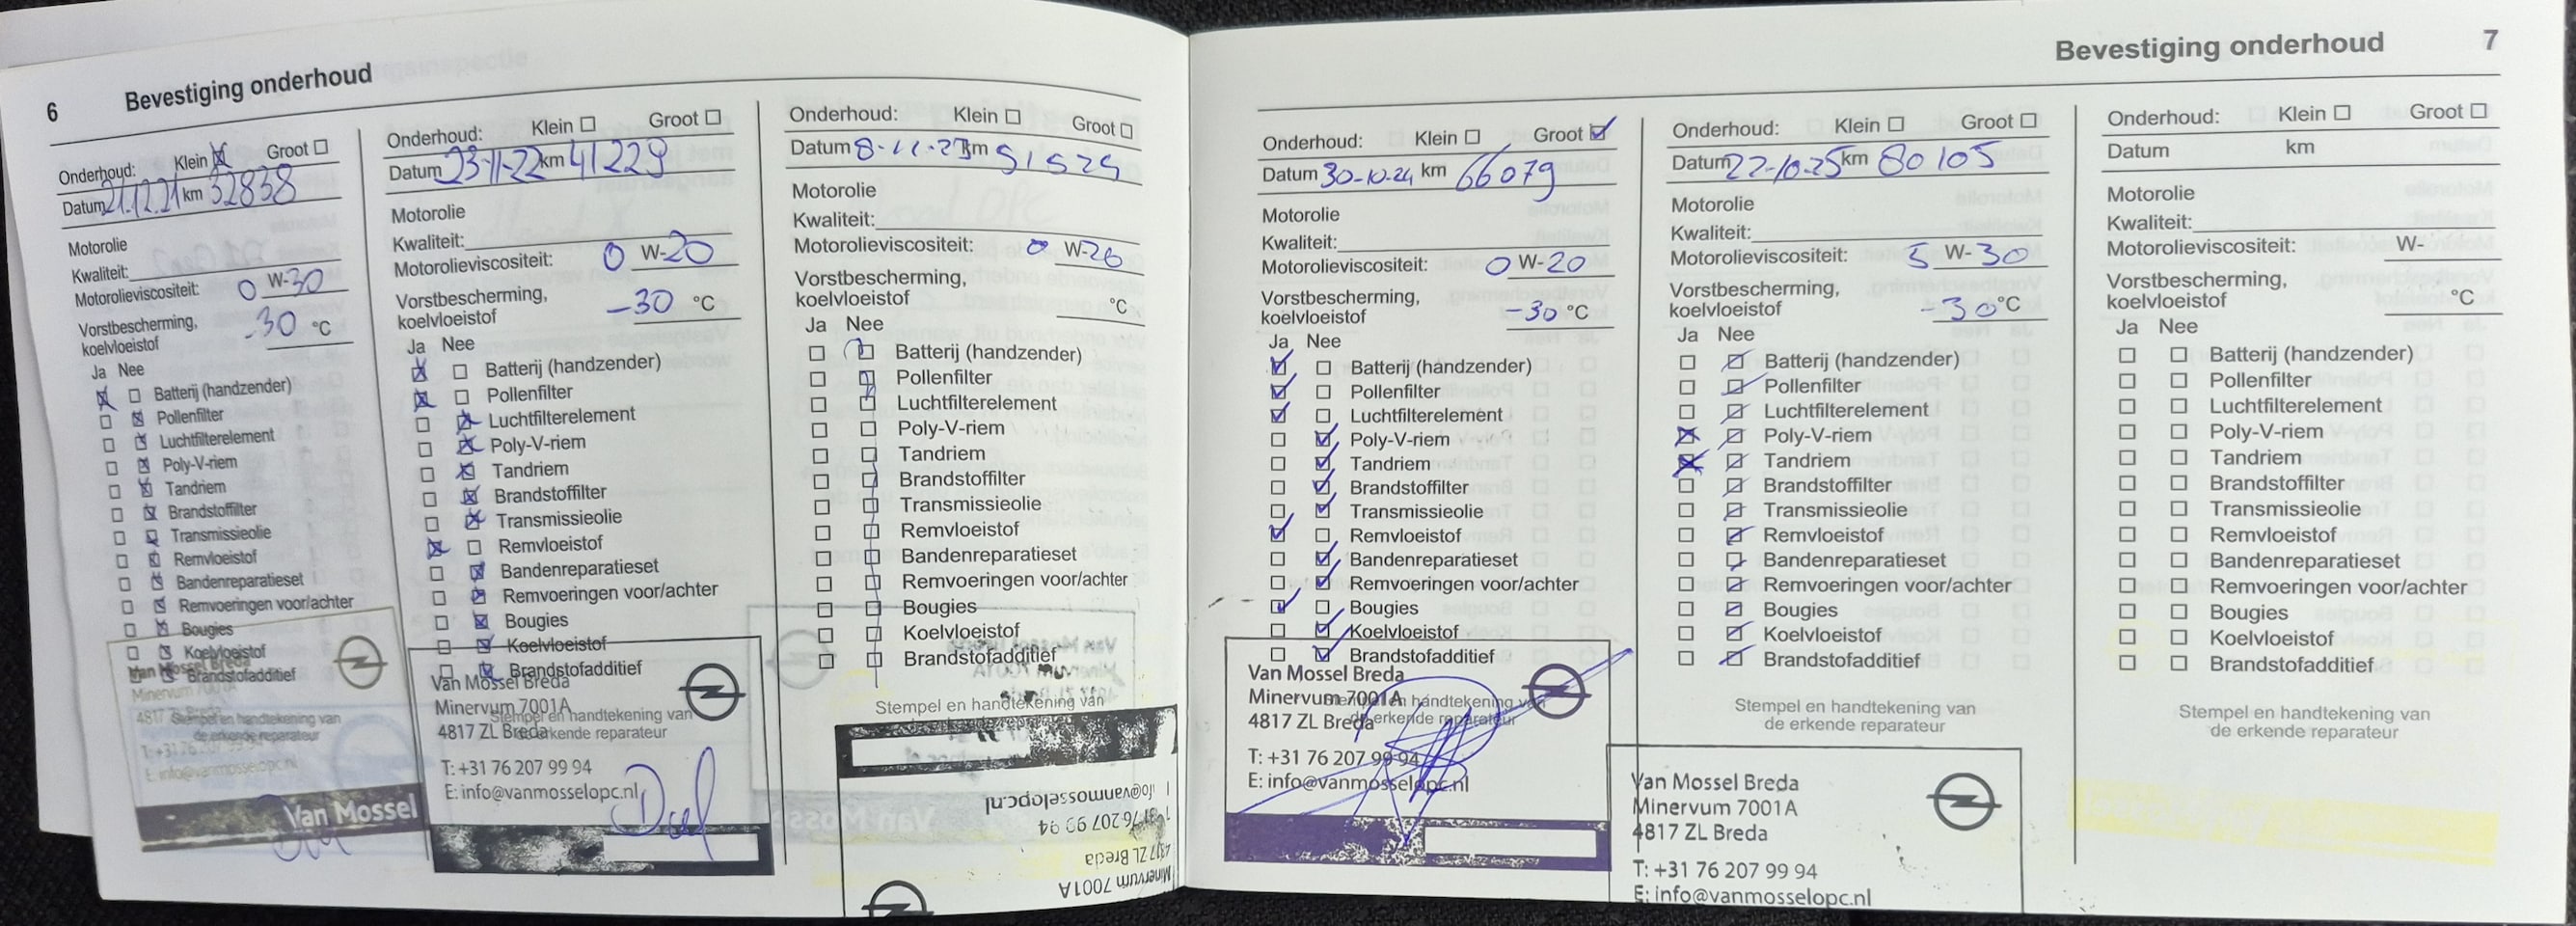 6 Bevestiging onderhoud
Onderhoud: Klein ☒ Groot ☐
Datum 21.12.21 km 32838
Motorolie
Kwaliteit:
Motorolieviscositeit: 0 W-30
Vorstbescherming,
koelvloeistof -30 °C
Ja Nee
☒ ☐ Batterij (handzender)
☐ ☒ Pollenfilter
☐ ☒ Luchtfilterelement
☐ ☒ Poly-V-riem
☐ ☒ Tandriem
☐ ☒ Brandstoffilter
☐ ☒ Transmissieolie
☐ ☒ Remvloeistof
☐ ☒ Bandenreparatieset
☐ ☒ Remvoeringen voor/achter
☐ ☒ Bougies
☐ ☒ Koelvloeistof
☐ ☒ Brandstofadditief
Stempel en handtekening van
de erkende reparateur
Van Mossel Breda
Minervum 7001A
4817 ZL Breda
T: +31 76 207 99 94
E: info@vanmosselopc.nl
Van Mossel
Onderhoud: Klein ☐ Groot ☐
Datum 23-11-22 km 41229
Motorolie
Kwaliteit:
Motorolieviscositeit: 0 W-20
Vorstbescherming,
koelvloeistof -30 °C
Ja Nee
☒ ☐ Batterij (handzender)
☒ ☐ Pollenfilter
☐ ☒ Luchtfilterelement
☐ ☒ Poly-V-riem
☐ ☒ Tandriem
☐ ☒ Brandstoffilter
☐ ☒ Transmissieolie
☒ ☐ Remvloeistof
☐ ☒ Bandenreparatieset
☐ ☒ Remvoeringen voor/achter
☐ ☒ Bougies
☐ ☒ Koelvloeistof
☐ ☒ Brandstofadditief
Stempel en handtekening van
de erkende reparateur
Van Mossel Breda
Minervum 7001A
4817 ZL Breda
T: +31 76 207 99 94
E: info@vanmosselopc.nl
Onderhoud: Klein ☐ Groot ☐
Datum 8-11-23 km 51524
Motorolie
Kwaliteit:
Motorolieviscositeit: 0 W-20
Vorstbescherming,
koelvloeistof °C
Ja Nee
☐ ☐ Batterij (handzender)
☐ ☐ Pollenfilter
☐ ☐ Luchtfilterelement
☐ ☐ Poly-V-riem
☐ ☐ Tandriem
☐ ☐ Brandstoffilter
☐ ☐ Transmissieolie
☐ ☐ Remvloeistof
☐ ☐ Bandenreparatieset
☐ ☐ Remvoeringen voor/achter
☐ ☐ Bougies
☐ ☐ Koelvloeistof
☐ ☐ Brandstofadditief
Stempel en handtekening van
de erkende reparateur
Minervum 7001A
4817 ZL Breda
76 207 99 94
fo@vanmosselopc.nl
Bevestiging onderhoud 7
Onderhoud: Klein ☐ Groot ☑
Datum 30-10-24 km 66079
Motorolie
Kwaliteit:
Motorolieviscositeit: 0 W-20
Vorstbescherming,
koelvloeistof -30 °C
Ja Nee
☑ ☐ Batterij (handzender)
☑ ☐ Pollenfilter
☑ ☐ Luchtfilterelement
☐ ☑ Poly-V-riem
☐ ☑ Tandriem
☐ ☑ Brandstoffilter
☐ ☑ Transmissieolie
☑ ☐ Remvloeistof
☐ ☑ Bandenreparatieset
☐ ☑ Remvoeringen voor/achter
☑ ☐ Bougies
☐ ☑ Koelvloeistof
☐ ☑ Brandstofadditief
Stempel en handtekening van
de erkende reparateur
Van Mossel Breda
Minervum 7001A
4817 ZL Breda
T: +31 76 207 99 94
E: info@vanmosselopc.nl
Onderhoud: Klein ☐ Groot ☐
Datum 22-10-25 km 80105
Motorolie
Kwaliteit:
Motorolieviscositeit: 5 W-30
Vorstbescherming,
koelvloeistof -30 °C
Ja Nee
☐ ☑ Batterij (handzender)
☐ ☑ Pollenfilter
☐ ☑ Luchtfilterelement
☒ ☑ Poly-V-riem
☒ ☑ Tandriem
☐ ☑ Brandstoffilter
☐ ☑ Transmissieolie
☐ ☑ Remvloeistof
☐ ☑ Bandenreparatieset
☐ ☑ Remvoeringen voor/achter
☐ ☑ Bougies
☐ ☑ Koelvloeistof
☐ ☑ Brandstofadditief
Stempel en handtekening van
de erkende reparateur
Van Mossel Breda
Minervum 7001A
4817 ZL Breda
T: +31 76 207 99 94
E: info@vanmosselopc.nl
Onderhoud: Klein ☐ Groot ☐
Datum km
Motorolie
Kwaliteit:
Motorolieviscositeit: W-
Vorstbescherming,
koelvloeistof °C
Ja Nee
☐ ☐ Batterij (handzender)
☐ ☐ Pollenfilter
☐ ☐ Luchtfilterelement
☐ ☐ Poly-V-riem
☐ ☐ Tandriem
☐ ☐ Brandstoffilter
☐ ☐ Transmissieolie
☐ ☐ Remvloeistof
☐ ☐ Bandenreparatieset
☐ ☐ Remvoeringen voor/achter
☐ ☐ Bougies
☐ ☐ Koelvloeistof
☐ ☐ Brandstofadditief
Stempel en handtekening van
de erkende reparateur